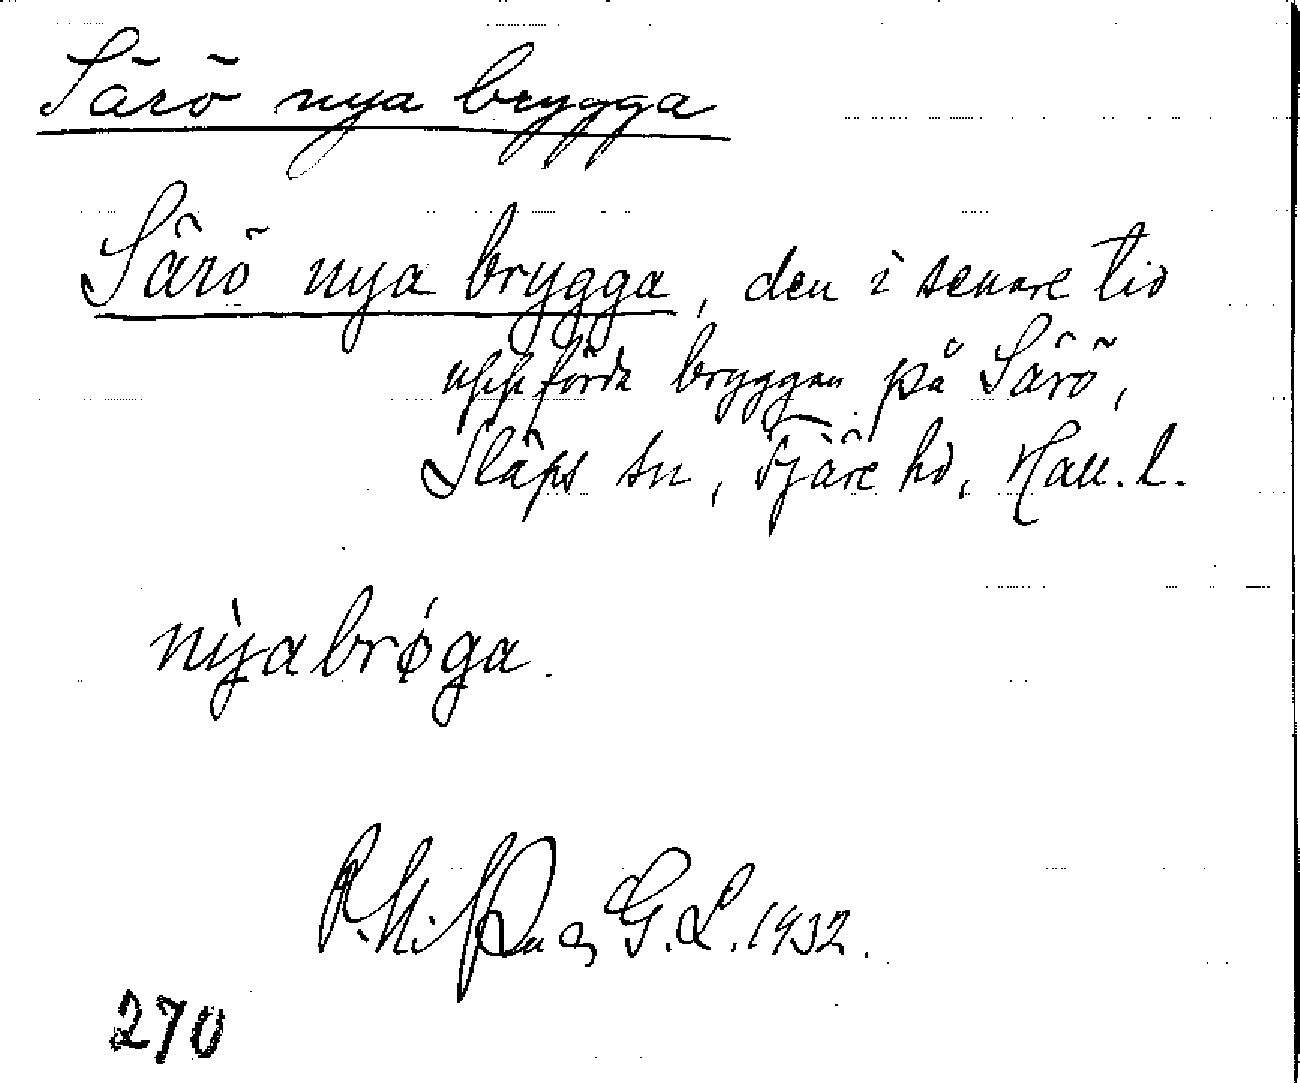 Särö nya brygga
Särö nya brygga, den i senare tid
uppförda bryggan på Särö,
Släps sn, Fjäre hd, Hall. l.
nỳabrǿga.
G. L. 1932.
270